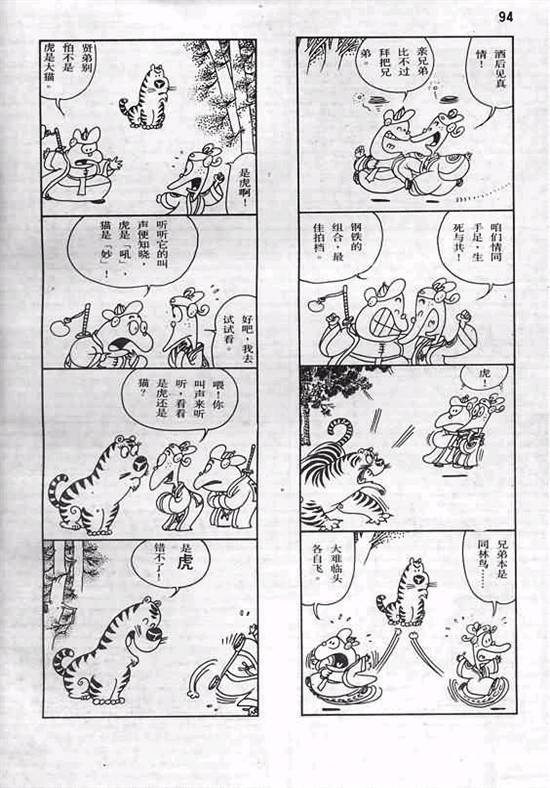 94
酒后见真
情！
亲兄弟
比不过
拜把兄
弟。
咱们情同
手足，生
死与共！
钢铁的
组合，最
佳拍档。
虎！
兄弟本是
同林鸟……
大难临头
各自飞。
贤弟别
怕不是
虎是大猫。
是虎啊！
听听它的叫
声便知晓，
虎是「吼」，
猫是「妙」！
好吧，我去
试试看。
喂！你
叫声来听
听，看看
是虎还是
猫？
是虎
错不了！